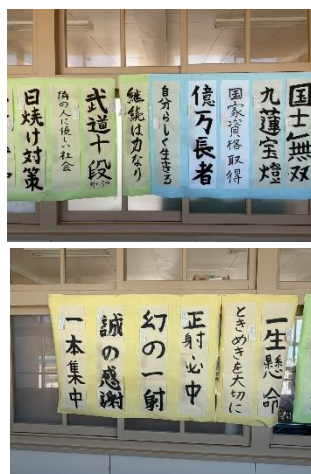 国士無双
九蓮宝燈
国家資格取得
億万長者
自分らしく生きる
継続は力なり
武道十段
隣の人に優しい社会
日焼け対策
一生懸命
ときめきを大切に
正射必中
幻の一射
誠の感謝
一本集中